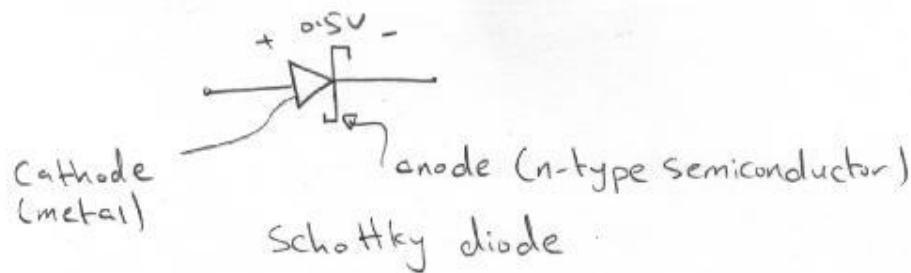 + 0.5V -
Cathode
(metal)
anode (n-type semiconductor)
Schottky diode